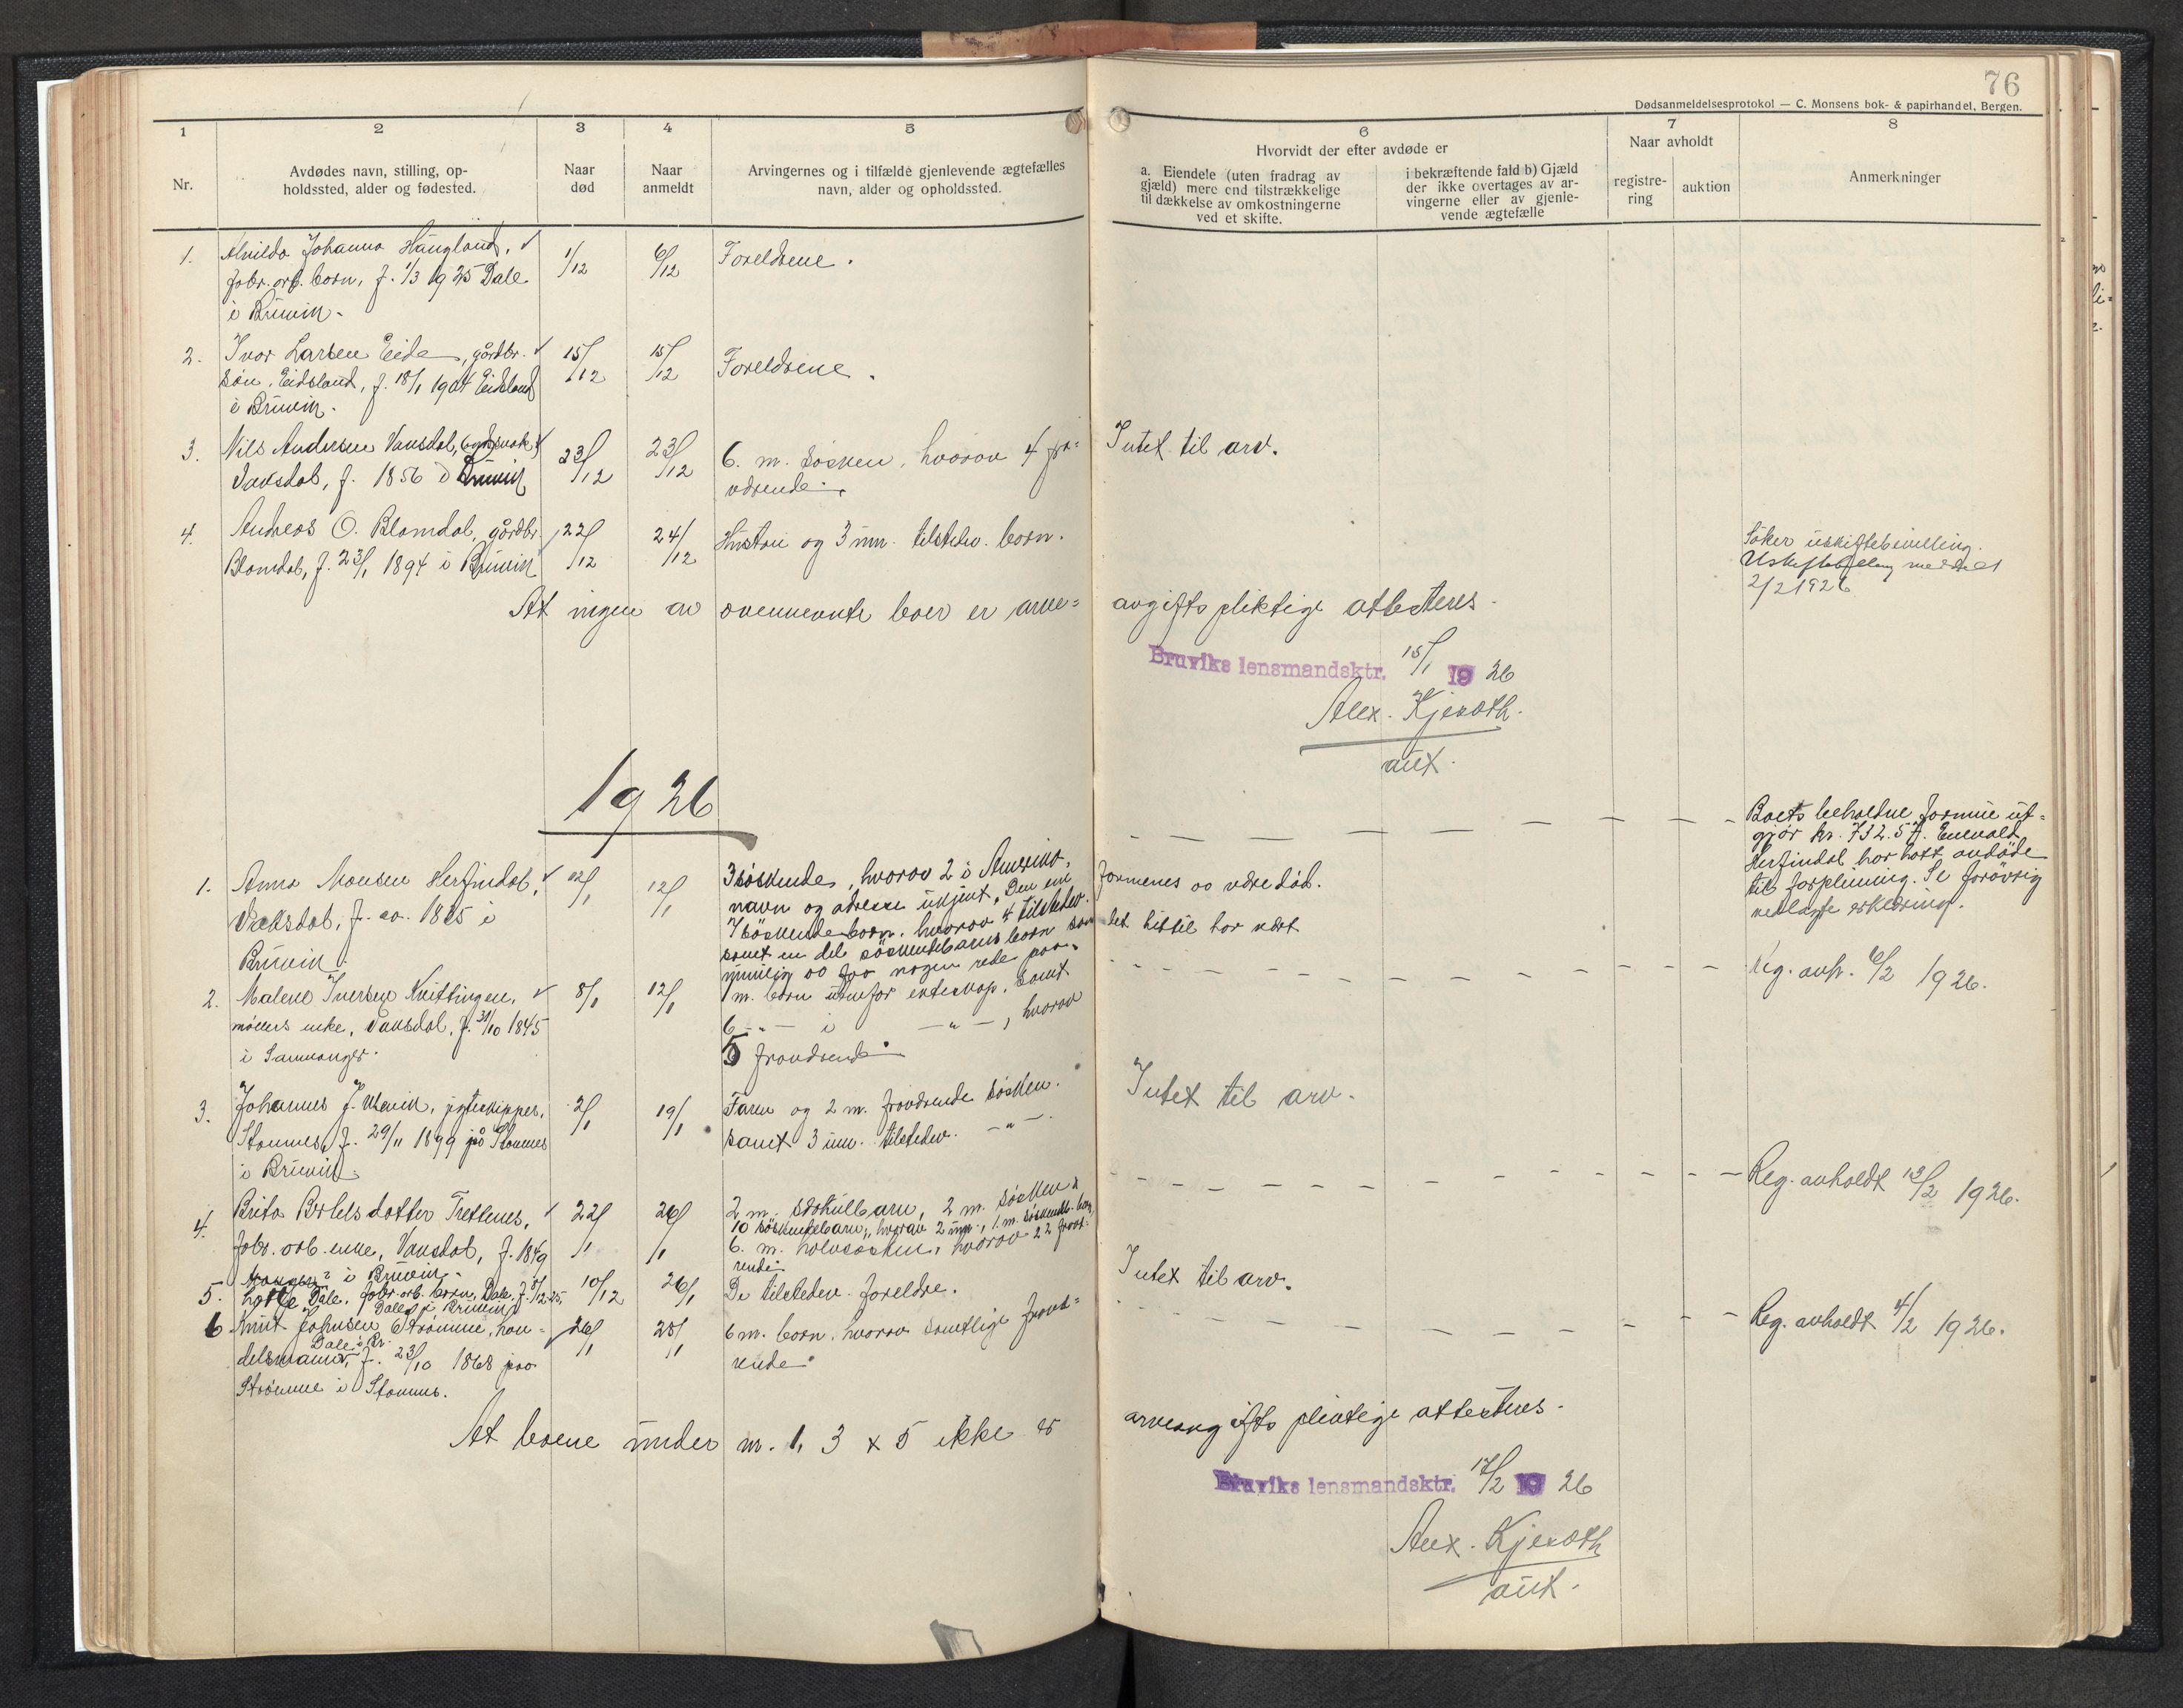 76
Dødsanmeldelsesprotokol — C. Monsens bok- & papirhandel, Bergen.
1
2
3
4
5
6
7
8
Nr.
Avdødes navn, stilling, op-
holdssted, alder og fødested.
Naar
død
Naar
anmeldt
Arvingernes og i tilfælde gjenlevende ægtefælles
navn, alder og opholdssted.
Hvorvidt der efter avdøde er
a. Eiendele (uten fradrag av
gjæld) mere end tilstrækkelige
til dækkelse av omkostningerne
ved et skifte.
i bekræftende fald b) Gjæld
der ikke overtages av ar-
vingerne eller av gjenle-
vende ægtefælle
Naar avholdt
registre-
ring
auktion
Anmerkninger
1. Johanna Haugland,
fabr. arb. barn, f. 1/3 1925 Dale
i Bruvik.
1/12
6/12
Foreldrene.
2. Ivar Larsen Eide, gårdbr.
søn, Eidsland, f. 18/1 1904 Eidsland
i Bruvik.
15/12
15/12
Foreldrene.
3. Nils Andersen Vaksdal,
Vaksdal, f. 1856 i Bruvik
23/12
23/12
6. m. søsken, hvorav 4 fra=
værende.
Intet til arv.
4. Andreas O. Blomdal, gårdbr.
Blomdal, f. 23/1 1894 i Bruvik
22/12
24/12
Hustru og 3 um. tilstedev. børn.
Søker uskiftebevilling.
Uskiftebevilling meddelt
2/2 1926
At ingen av ovennevnte boer er arve=
avgiftspliktige attesteres.
Bruviks lensmandsktr. 15/1 1926
Alex. Kjeroth.
aut.
1926
1. Anna Monsen Herfindal,
Vaksdal, f. ca. 1885 i
Bruvik.
12/1
12/1
3 søskende, hvorav 2 i Amerika,
navn og adresse ukjent, Den ene
formenes å være død.
7 søskendebørn, hvorav 4 tilstedev.
samt en del søskendebarns børn som
det hittil har vært
umulig å faa nogen rede paa.
Boets beholdne formue ut=
gjør kr. 732.57. Enevald
Herfindal har hatt avdøde
til forpleining. Se forøvrig
vedlagte erklæring.
2. Malene Iversen Kvittingen,
møllers enke, Vaksdal, f. 31/10 1845
i Samnanger.
8/1
12/1
1 m. børn utenfor ekteskap, samt
6 -"- i -"-, hvorav
5 fraværende.
Reg. avh. 6/2 1926.
3. Johannes J. jigteskipper,
Stamnes, f. 29/11 1899 på Stamnes
i Bruvik.
2/1
19/1
Faren og 2 m. fraværende søsken.
samt 3 um. tilstedev. -"-
Intet til arv.
4. Brita Bertelsdatter Trettenes,
fabr. arb. enke, Vaksdal, f. 1849
i Bruvik.
22/1
26/1
2 m. særkullbarn, 2 m. søsken &
10 søskendebarn, hvorav 2 um., 1 m. søskendeb. barn
6. m. halvsøsken, hvorav 22 fravæ-
rende.
Reg. avholdt 13/2 1926.
5. Dale, fabr. arb. barn, Dale, f. 8/12 25,
Dale i Bruvik
10/12
26/1
De tilstedev. foreldre.
Intet til arv.
6 Knut Johnsen Strømme, han-
Dale i Br.
delsmand, f. 23/10 1868 paa
Strømme i Stamnes.
26/1
28/1
6 m. børn, hvorav samtlige fravæ=
rende
Reg. avholdt 4/2 1926.
At boene under nr. 1, 3 & 5 ikke er
arveavgiftspliktige attesteres.
Bruviks lensmandsktr. 17/2 1926
Alex. Kjeroth
aut.